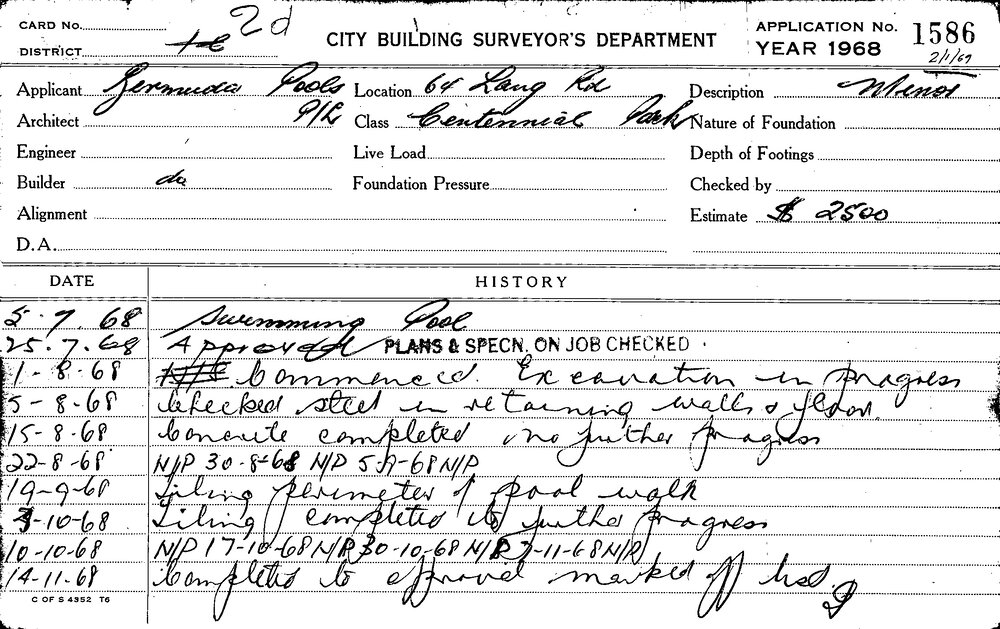 CARD No. 2d
CITY BUILDING SURVEYOR'S DEPARTMENT
APPLICATION No. 1586
DISTRICT
YEAR 1968
2/1/69
Applicant Bermuda Pools Location 64 Lang Rd Description Minor
Architect P/L Class Centennial Park Nature of Foundation
Engineer Live Load Depth of Footings
Builder do Foundation Pressure Checked by
Alignment Estimate $ 2500
D.A.
DATE HISTORY
5.7.68 Swimming Pool
25.7.68 Approved PLANS & SPECN. ON JOB CHECKED
1-8-68 Commenced. Excavation in progress
5-8-68 Checked steel in retaining walls & floor.
15-8-68 Concrete completed no further progress
22-8-68 N/P 30-8-68 N/P 5-9-68 N/P
19-9-68 Tiling perimeter of pool walk
3-10-68 Tiling completed no further progress
10-10-68 N/P 17-10-68 N/P 30-10-68 N/P 7-11-68 N/P
14-11-68 Completed to approval marked off
C OF S 4352 T6